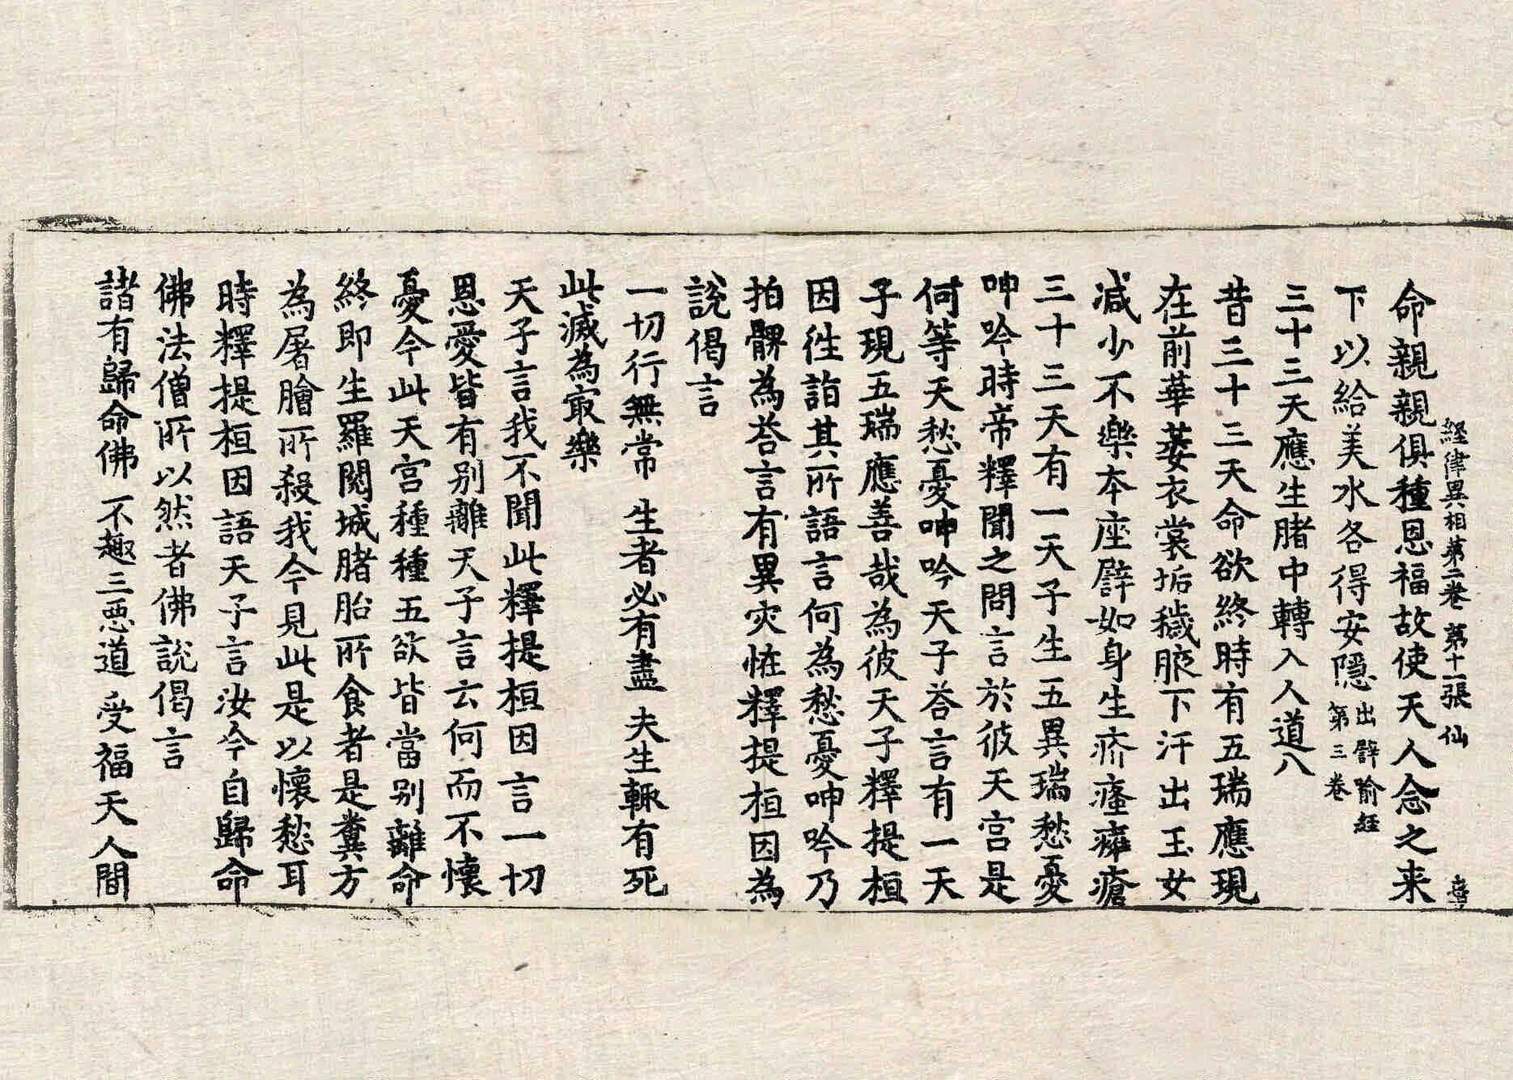 經律異相第二卷 第十一張 仙
命親親俱種恩福故使天人念之来
下以給美水各得安隱出譬喻經第三卷
三十三天應生賭中轉入人道八
昔三十三天命欲終時有五瑞應現
在前華萎衣裳垢穢腋下汗出玉女
減少不樂本座譬如身生疥瘙癰瘡
三十三天有一天子生五異瑞愁憂
呻吟時帝釋聞之問言於彼天宫是
何等天愁憂呻吟天子荅言有一天
子現五瑞應善哉為彼天子釋提桓
因徃詣其所語言何為愁憂呻吟乃
拍髀為荅言有異灾恠釋提桓因為
說偈言
一切行無常 生者必有盡 夫生輙有死
此滅為㝡樂
天子言我不聞此釋提桓因言一切
恩愛皆有别離天子言云何而不懷
憂今此天宫種種五欲皆當别離命
終即生羅閱城賭胎所食者是糞方
為屠膾所殺我今見此是以懷愁耳
時釋提桓因語天子言汝今自歸命
佛法僧所以然者佛說偈言
諸有歸命佛 不趣三惡道 受福天人間